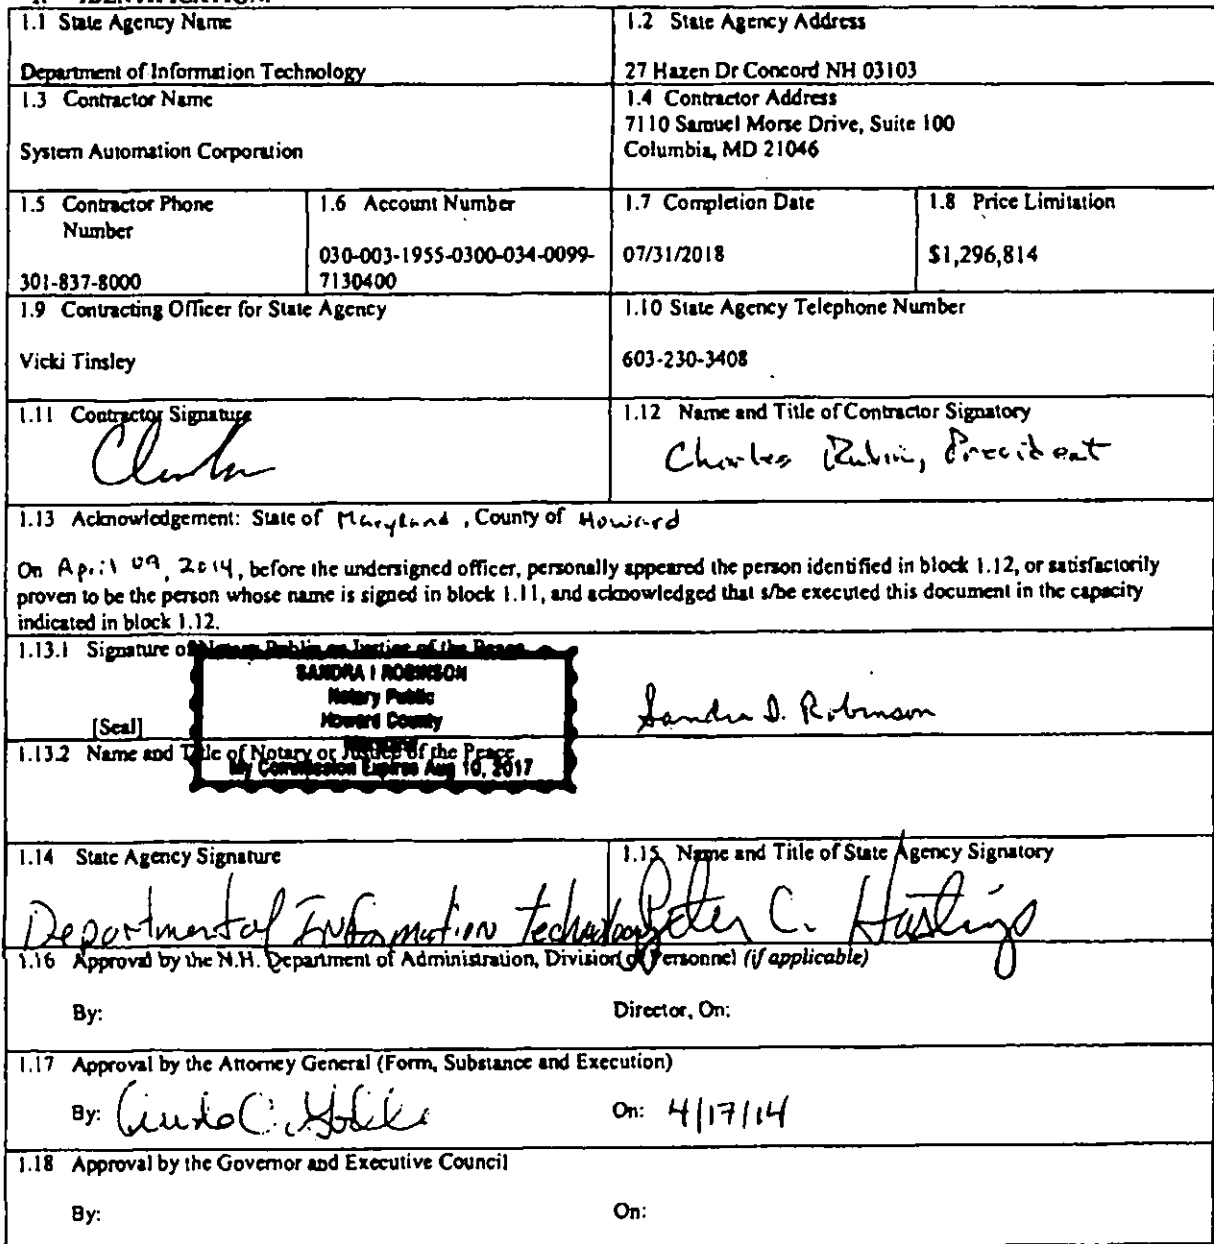 1.1 State Agency Name
Department of Information Technology
1.2 State Agency Address
27 Hazen Dr Concord NH 03103
1.3 Contractor Name
System Automation Corporation
1.4 Contractor Address
7110 Samuel Morse Drive, Suite 100
Columbia, MD 21046
1.5 Contractor Phone
Number
301-837-8000
1.6 Account Number
030-003-1955-0300-034-0099-
7130400
1.7 Completion Date
07/31/2018
1.8 Price Limitation
$1,296,814
1.9 Contracting Officer for State Agency
Vicki Tinsley
1.10 State Agency Telephone Number
603-230-3408
1.11 Contractor Signature
1.12 Name and Title of Contractor Signatory
Charles Rubin, President
1.13 Acknowledgement: State of Maryland, County of Howard
On April 09, 2014, before the undersigned officer, personally appeared the person identified in block 1.12, or satisfactorily
proven to be the person whose name is signed in block 1.11, and acknowledged that s/he executed this document in the capacity
indicated in block 1.12.
1.13.1 Signature of Notary Public or Justice of the Peace
SANDRA I ROBINSON
Notary Public
Howard County
Maryland
My Commission Expires Aug 10, 2017
[Seal]
Sandra I. Robinson
1.13.2 Name and Title of Notary or Justice of the Peace
1.14 State Agency Signature
Department of Information Technology
1.15 Name and Title of State Agency Signatory
Peter C. Hastings
1.16 Approval by the N.H. Department of Administration, Division of Personnel (if applicable)
By:
Director, On:
1.17 Approval by the Attorney General (Form, Substance and Execution)
By:
On: 4/17/14
1.18 Approval by the Governor and Executive Council
By:
On: